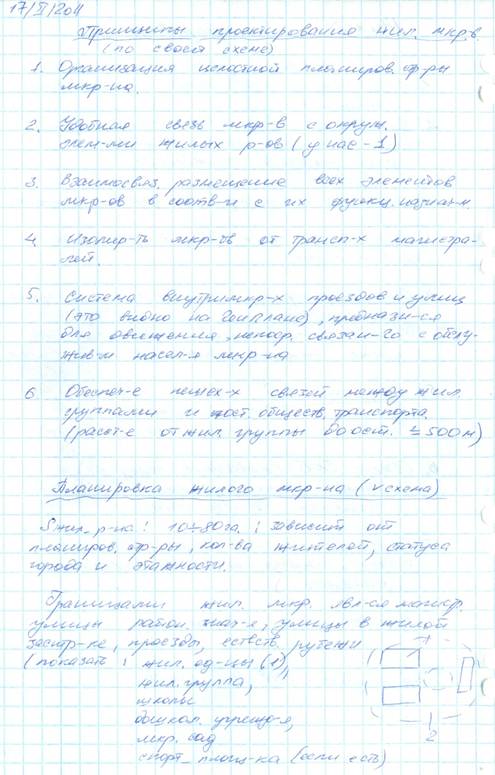 17/II/2011
Принципы проектирования жил. мкр-в.
(по своей схеме)
1. Организация целостной планиров. ст-ры
мкр-на.
2. Удобная связь мкр-в с окруж.
элем-ми жилых р-ов (у нас - 1)
3. Взаимосвяз. размещение всех элементов
мкр-ов в соотв-и с их функц. назнач-м.
4. Изолир-ть мкр-в от трансп-х магистра-
лей.
5. Система внутримкр-х проездов и улиц
(это видно на генплане), предназн-ся
для движения, непоср. связан-го с обслу-
жив-м насел-я мкр-на
6. Обеспеч-е пешех-х связей между жил.
группами и ост. обществ. транспорта.
(расст-е от жил. группы до ост. ≤ 500 м)
Планировка жилого мкр-на (v схема)
S жил. р-на: 10÷80 га; зависит от
планиров. стр-ры, кол-ва жителей, статуса
города и этажности.
Границами жил. мкр. явл-ся магистр.
улицы район. знач-я, улицы в жилой
застр-ке, проезды, естеств. рубежи
(показать: жил. ед-цы (1),
жил. группа,
школы
дошкол. учрежд-я,
мкр. сад
спорт. площ-ка (если есть)
1
2